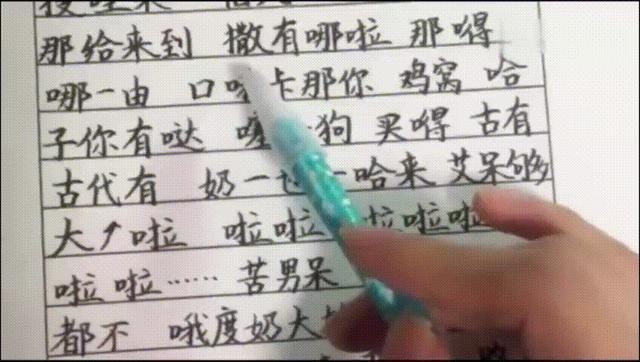 那给来到 撒有哪啦 那嘚
哪一由 口 卡那你 鸡窝 哈
子你有哒 狗 买嘚 古有
古代有 奶一 一哈来 艾呆够
大 啦 啦啦 啦啦啦
啦啦…… 苦男呆
都不 哦度奶大